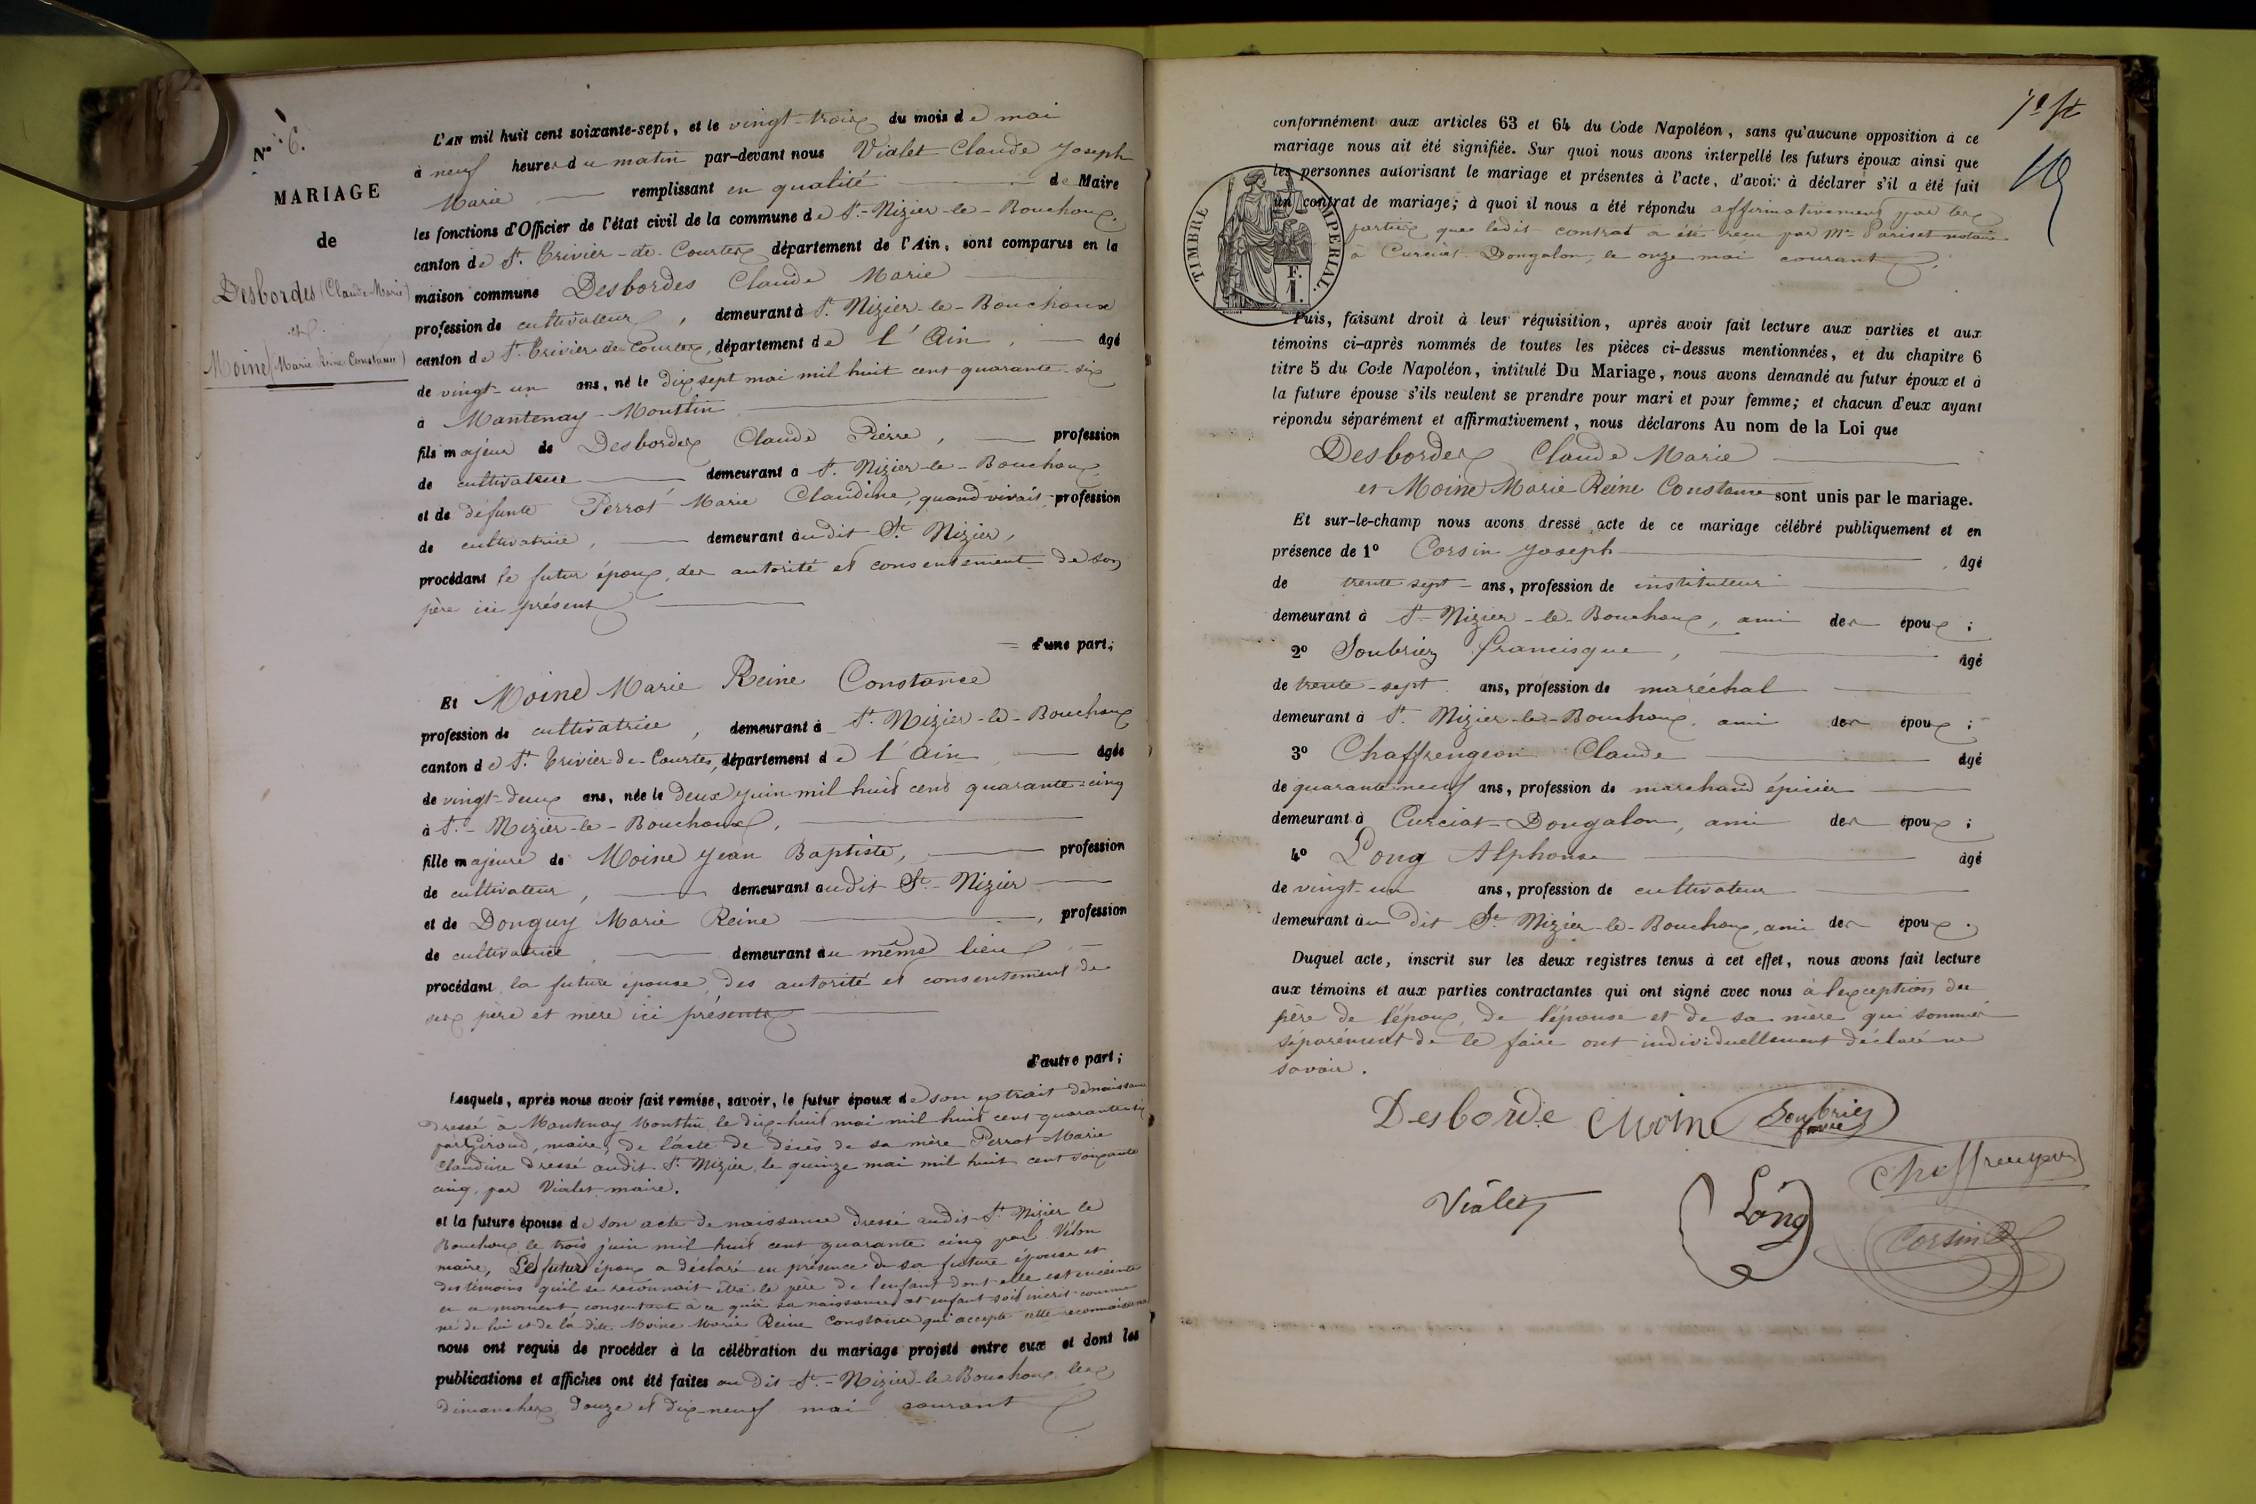 N° 6.
MARIAGE
de
Desbordes (Claude Marie)
et
Moine (Marie Reine Constance)
L'AN mil huit cent soixante-sept, et le vingt-trois du mois de mai
à neuf heures du matin par-devant nous Vialet Claude Joseph
Marie remplissant en qualité de Maire
les fonctions d'Officier de l'état civil de la commune de St-Nizier-le-Bouchoux
canton de St. Trivier-de-Courtes département de l'Ain, sont comparus en la
maison commune Desbordes Claude Marie
profession de cultivateur, demeurant à St. Nizier-le-Bouchoux
canton de St. Trivier-de-Courtes, département de l'Ain, âgé
de vingt-un ans, né le dix sept mai mil huit cent quarante-six
à Mantenay-Montlin
fils majeur de Desbordes Claude Pierre, profession
de cultivateur demeurant à St. Nizier-le-Bouchoux,
et de défunte Perrot Marie Claudine, quand vivait profession
de cultivatrice, demeurant audit St. Nizier,
procédant le futur époux, des autorité et consentement de son
père ici présent
d'une part;
Et Moine Marie Reine Constance
profession de cultivatrice, demeurant à St. Nizier-le-Bouchoux
canton de St. Trivier-de-Courtes, département de l'Ain âgée
de vingt-deux ans, née le deux juin mil huit cent quarante-cinq
à St.-Nizier-le-Bouchoux,
fille majeure de Moine Jean Baptiste, profession
de cultivateur, demeurant audit St-Nizier
et de Donguy Marie Reine, profession
de cultivatrice demeurant au même lieu
procédant la future épouse, des autorité et consentement de
ses père et mère ici présents
d'autre part;
Lesquels, après nous avoir fait remise, savoir, le futur époux de son extrait de naissance
dressé à Mantenay Montlin le dix-huit mai mil huit cent quarante six
par Giroud, maire, de l'acte de décès de sa mère Perrot Marie
Claudine dressé audit St. Nizier, le quinze mai mil huit cent soixante
cinq, par Vialet maire.
et la future épouse de son acte de naissance dressé audit St. Nizier le
Bouchoux le trois juin mil huit cent quarante cinq par Vélon
maire, Le futur époux a déclaré en présence de sa future épouse et
des témoins qu'il se reconnait être le père de l'enfant dont elle est enceinte
en ce moment, consentant à ce qu'à sa naissance cet enfant soit inscrit comme
né de lui et de la dite Moine Marie Reine Constance qui accepte cette reconnaissance
nous ont requis de procéder à la célébration du mariage projeté entre eux et dont les
publications et affiches ont été faites au dit St.-Nizier-le-Bouchoux les
dimanches douze et dix-neuf mai courant
conformément aux articles 63 et 64 du Code Napoléon, sans qu'aucune opposition à ce
mariage nous ait été signifiée. Sur quoi nous avons interpellé les futurs époux ainsi que
les personnes autorisant le mariage et présentes à l'acte, d'avoir à déclarer s'il a été fait
un contrat de mariage; à quoi il nous a été répondu affirmativement par les
parties que ledit contrat a été reçu par Me Pariset notaire
à Curciat-Dongalon, le onze mai courant.
TIMBRE IMPERIAL.
Puis, faisant droit à leur réquisition, après avoir fait lecture aux parties et aux
témoins ci-après nommés de toutes les pièces ci-dessus mentionnées, et du chapitre 6
titre 5 du Code Napoléon, intitulé Du Mariage, nous avons demandé au futur époux et à
la future épouse s'ils veulent se prendre pour mari et pour femme; et chacun d'eux ayant
répondu séparément et affirmativement, nous déclarons Au nom de la Loi que
Desbordes Claude Marie
et Moine Marie Reine Constance sont unis par le mariage.
Et sur-le-champ nous avons dressé acte de ce mariage célébré publiquement et en
présence de 1° Corsin Joseph âgé
de trente sept ans, profession de instituteur
demeurant à St-Nizier-le-Bouchoux, ami des époux;
2° Soubriez Francisque, âgé
de trente-sept ans, profession de maréchal
demeurant à St. Nizier-le-Bouchoux, ami des époux;
3° Chaffrengeon Claude âgé
de quarante neuf ans, profession de marchand épicier
demeurant à Curciat-Dongalon, ami des époux;
4° Long Alphonse âgé
de vingt-un ans, profession de cultivateur
demeurant au dit St. Nizier-le-Bouchoux, ami des époux.
Duquel acte, inscrit sur les deux registres tenus à cet effet, nous avons fait lecture
aux témoins et aux parties contractantes qui ont signé avec nous à l'exception du
père de l'époux, de l'épouse et de sa mère qui sommés
séparément de le faire ont individuellement déclaré ne
savoir.
Desborde Moine Soubriez
Chaffrengeon
Vialet Long
Corsin